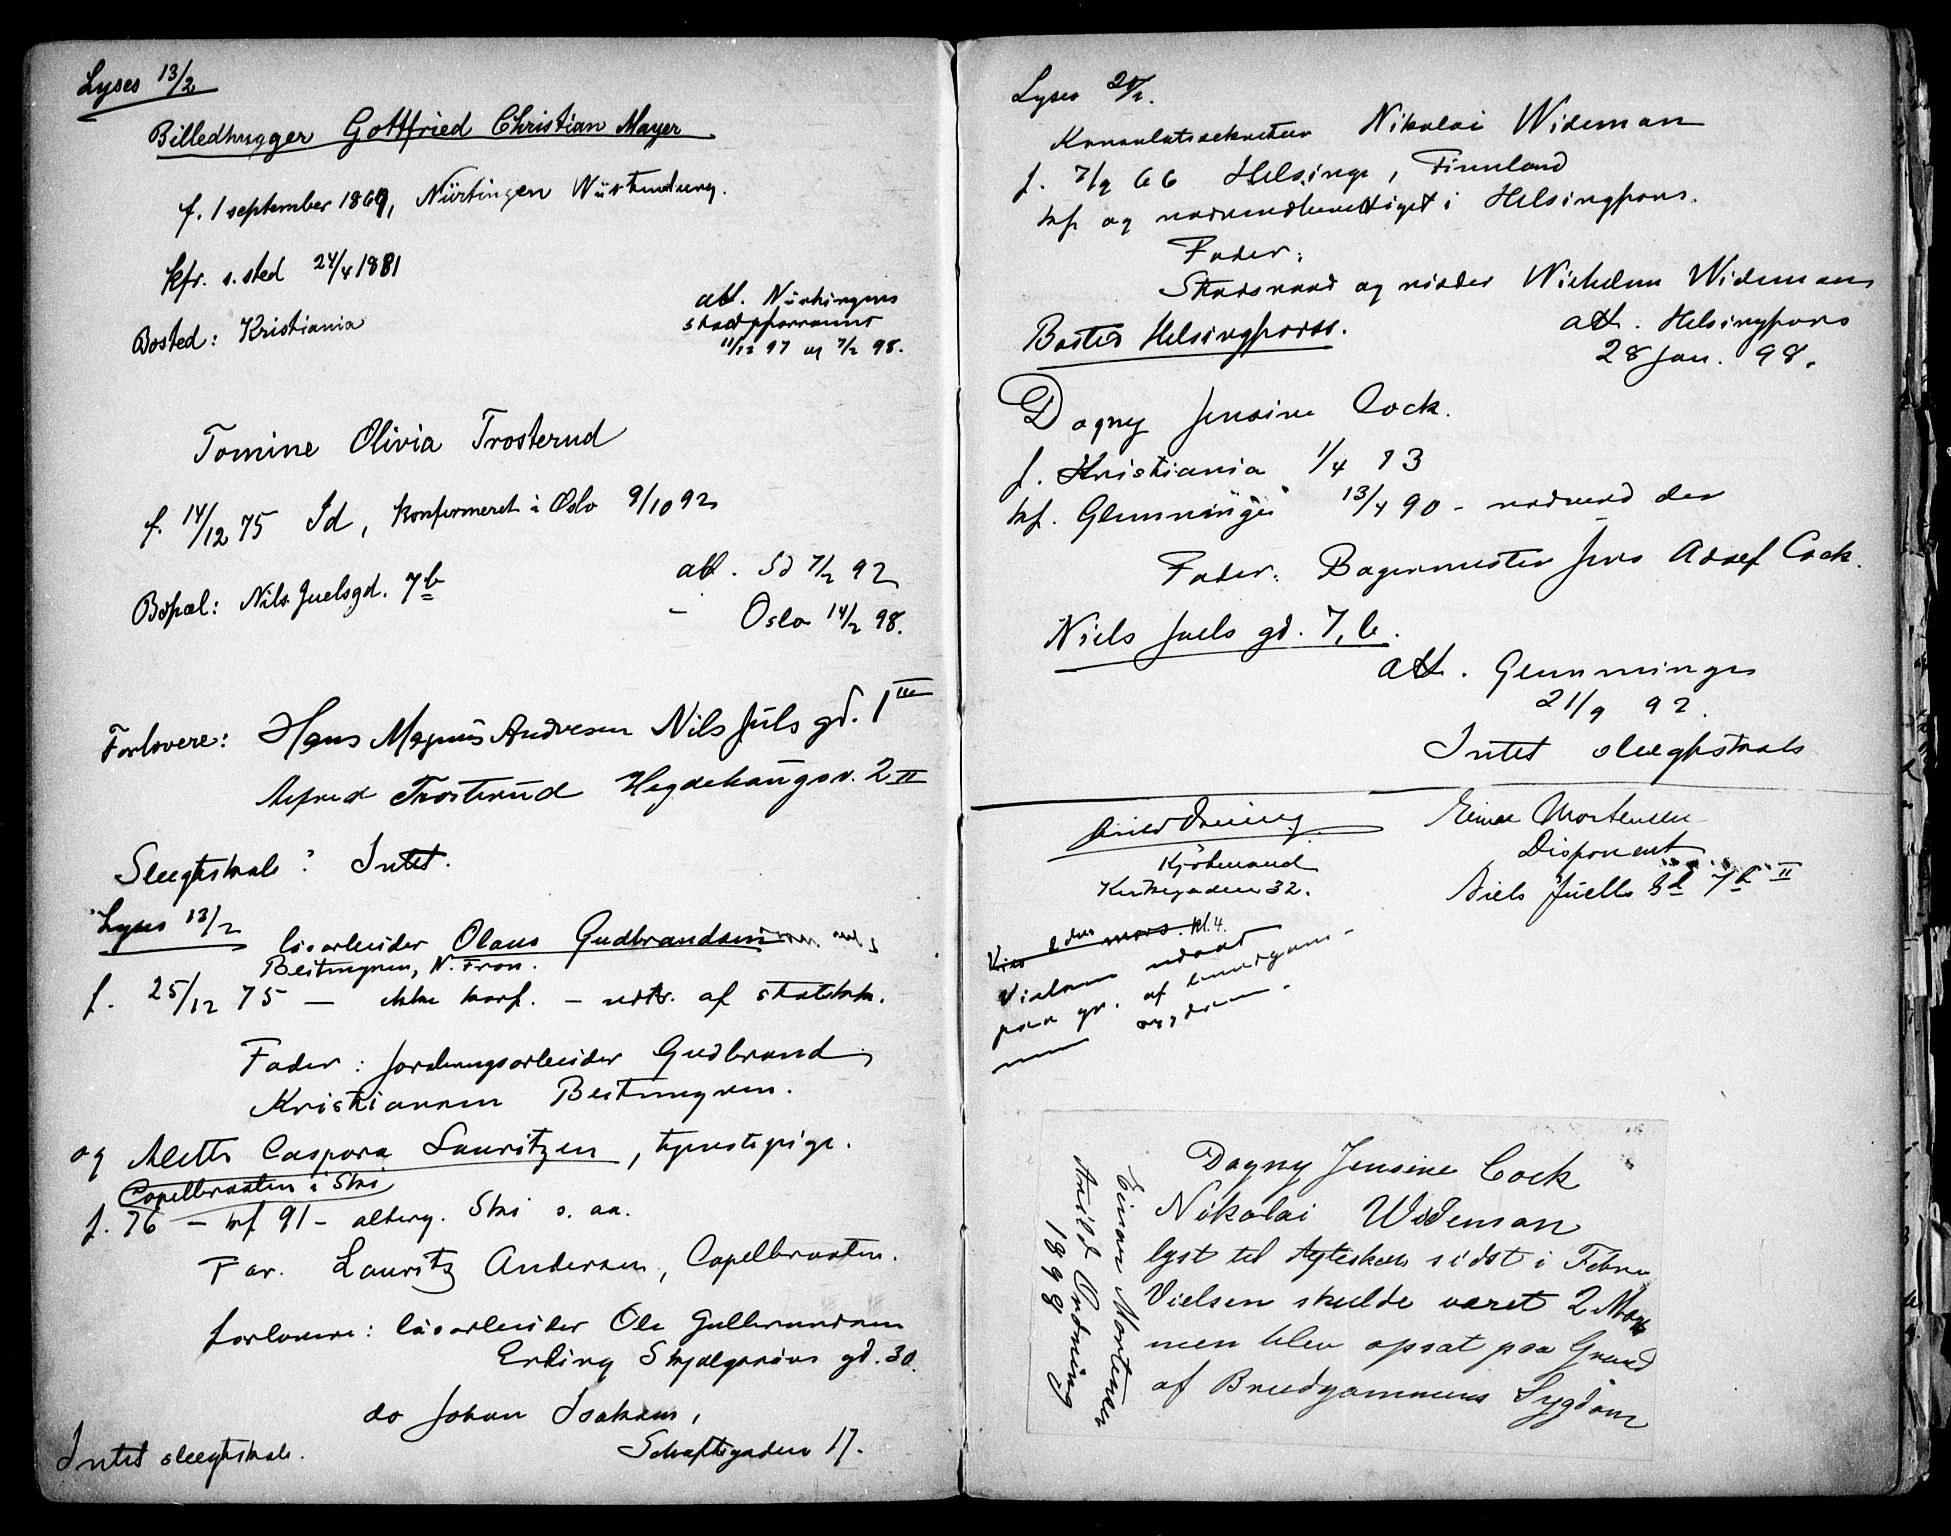 Lyses 13/2
Billedhugger Gottfried Christian Mayer
f. 1 september 1869, Nürtingen Würtemburg.
kfr. s. sted 24/4 1881
Bosted: Kristiania
att. Nürtingens
stadtpfarramt
11/12 97 og 7/2 98.
Tomine Olivia Trosterud
f. 14/12 75 Id, konfirmeret i Oslo 9/10 92
Bopæl: Nils Juelsgd. 7b
att. Id 7/2 92
– Oslo 14/2 98.
Forlovere: Hans Magnus Andresen Nils Juls gd. 1 III
Alfred Trosterud Hegdehaugsv. 2 II
Slegtskab? Intet.
Lyses 13/2
løsarbeider Olaus Gudbrandsen
Beitungren, N. Fron.
f. 25/12 75 – ikke konf. – udtr. af statskk.
Fader: jordbrugsarbeider Gudbrand
Kristiansen Beitungren.
og Mette Caspara Lauritzen, tjenestepige.
Capelbraaten i Ski
f. 76 – kf 91 – alterg. Ski s. aa.
Far. Lauritz Andersen, Capelbraaten.
forlovere: løsarbeider Ole Gulbrandsen
Erling Skjalgsøns gd. 30.
do Johan Isaksen,
Schultzgaden 17.
Intet slegtskab.
Lyses 20/2.
Konsulatssekretær Nikolai Wideman
f. 7/9 66 Helsinge, Finnland
kf. og nadverdberettiget i Helsingfors.
Fader:
Stadsraad og ridder Wilhelm Wideman
Bosted Helsingfors.
att. Helsingfors
28 jan. 98.
Dagny Jensine Cock.
f. Kristiania 1/4 73
kf. Glemminge 13/4 90 – nadverd der
Fader: Bagermester Jens Adolf Cock.
Niels Juels gd. 7, b.
att. Glemminge
21/9 92.
Intet slægtskab
Arild Ordning
Kjøbmand
Kirkegaden 32.
Einar Mortensen
Disponent
Niels Juells Gd 7b II
Kl. 4.
Vielsen udsat
paa gr. af brudgom-
mens sygdom.
Dagny Jensine Cock
Nikolai Wideman
lyst til Ægteskab sidst i Febru
Vielsen skulde været 2 Marts
men blev opsat paa Grund
af Brudgommens Sygdom
Einar Mortensen
Arild Ordning
1898